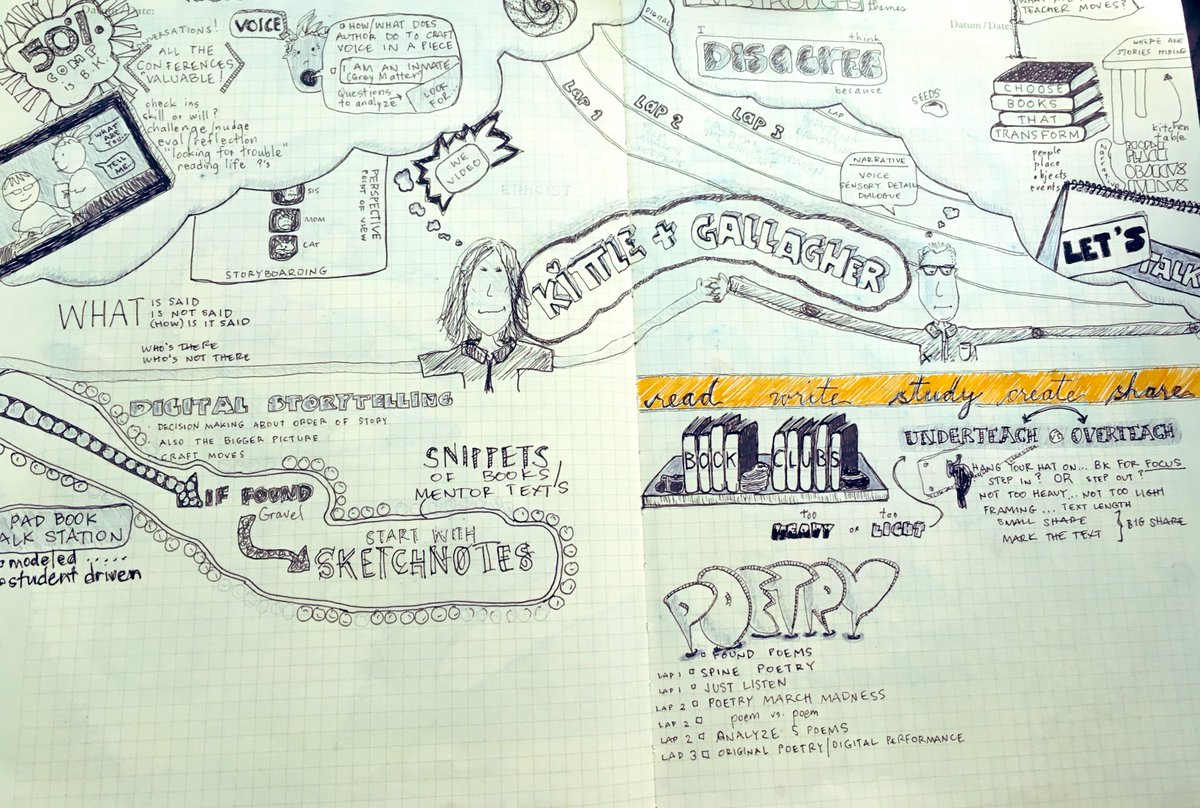 Datum / Date:
50%.
OF DAP
IS B.K
CONVERSATIONS!
ALL THE
CONFERENCES
VALUABLE!
check ins
skill or will?
challenge/nudge
eval/reflection
"looking for trouble"
reading life ?'s
WHAT
ARE
YOU..
TELL
ME.
VOICE
HOW/WHAT DOES
AUTHOR DO TO CRAFT
VOICE IN A PIECE
I AM AN INMATE
(Grey Matter)
Questions
to analyze
LOOK
FOR...
SIS
MOM
CAT
PERSPECTIVE
POINT OF VIEW
STORYBOARDING
WE
VIDEO
ETHICIST
WHAT IS SAID
IS NOT SAID
(HOW) IS IT SAID
WHO'S THERE
WHO'S NOT THERE
KITTLE + GALLAGHER
DIGITAL
themes
I think
DISAGREE
because
LAP 1
LAP 2
LAP 3
LAP
NARRATIVE
VOICE
SENSORY DETAIL
DIALOGUE
SEEDS
Datum / Date:
TEACHER MOVES?
CHOOSE
BOOKS
THAT
TRANSFORM
people
place
objects
events
WHERE ARE
STORIES HIDING
kitchen
table
LET'S
TALK
DIGITAL STORYTELLING
· DECISION MAKING ABOUT ORDER OF STORY
· ALSO THE BIGGER PICTURE
CRAFT MOVES
IF FOUND
Gravel
START WITH
SKETCHNOTES
SNIPPETS
OF BOOKS/
MENTOR TEXTS
PAD BOOK
ALK STATION
modeled .....
student driven
read write study create share
BOOK CLUBS
too too
HEAVY or LIGHT
UNDERTEACH & OVERTEACH
HANG YOUR HAT ON... BK FOR FOCUS
STEP IN? OR STEP OUT?
NOT TOO HEAVY... NOT TOO LIGHT
FRAMING ... TEXT LENGTH
SMALL SHARE
MARK THE TEXT
BIG SHARE
POETRY
FOUND POEMS
LAP 1 SPINE POETRY
LAP 1 JUST LISTEN
LAP 2 POETRY MARCH MADNESS
LAP 2 poem vs. poem
LAP 2 ANALYZE 5 POEMS
LAP 3 ORIGINAL POETRY/DIGITAL PERFORMANCE